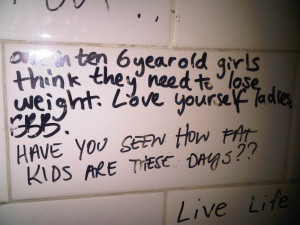 one in ten 6 year old girls
think they need to lose
weight. Love yourself ladies
HAVE YOU SEEN HOW FAT
KIDS ARE THESE DAYS??
Live Life